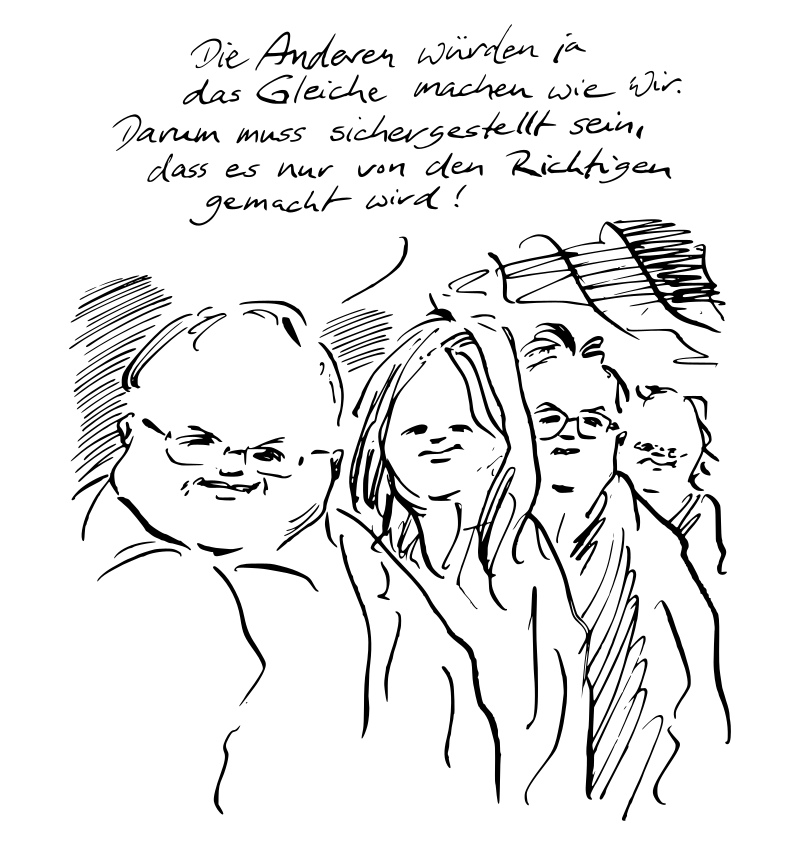 Die Anderen würden ja
das Gleiche machen wie Wir.
Darum muss sichergestellt sein,
dass es nur von den Richtigen
gemacht wird!